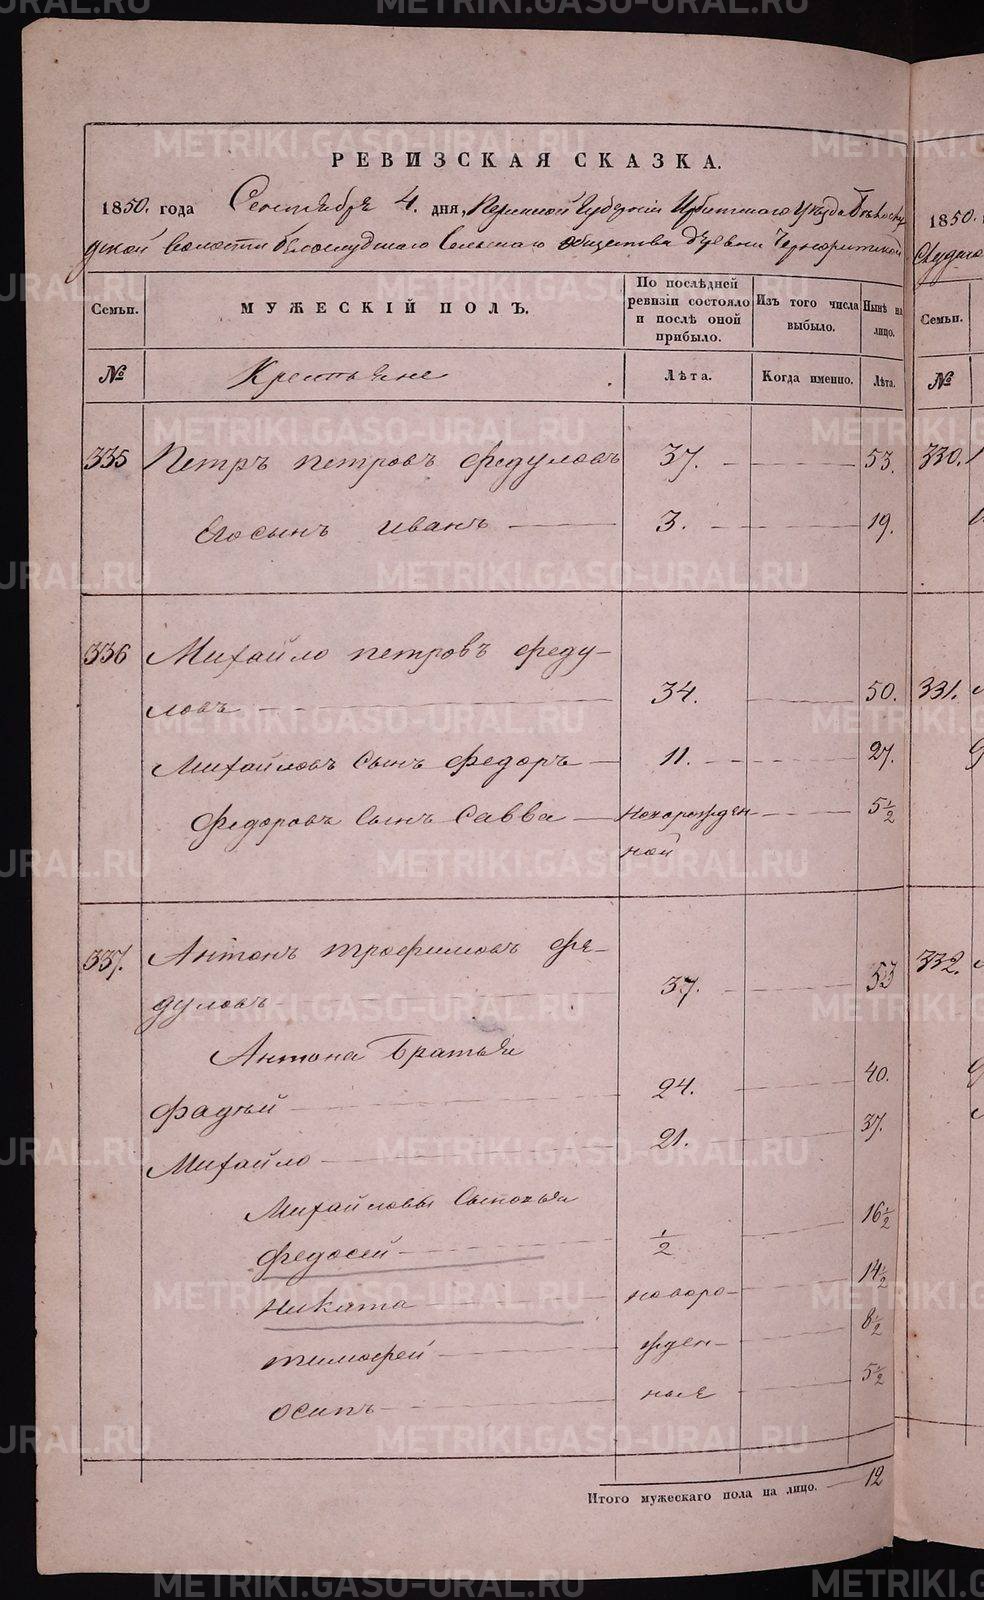 METRIKI.GASO-URAL.RU
РЕВИЗСКАЯ СКАЗКА.
1850. года Сентября 4. дня, Пермской Губернiи Ирбитскаго Уѣзда Бѣлослу
дской Волости Бѣлослудскаго Сельскаго общества дѣревни
Семьи. МУЖЕСКІЙ ПОЛЪ. По послѣдней ревизіи состояло и послѣ оной прибыло. Изъ того числа выбыло. Нынѣ на лицо.
№ Крестьяне Лѣта. Когда именно. Лѣта.
335 Петръ петровъ федуловъ 37. 53.
Его сынъ иванъ 3. 19.
336 Михайло петровъ феду-
ловъ 34. 50.
Михайловъ Сынъ федоръ 11. 27.
Федоровъ Сынъ Савва новорожден 5½
ной
337. Антонъ трофимовъ фе-
дуловъ 37. 53
Антона Братья
фадѣй 24. 40.
Михайло 21. 37.
Михайловы Сыновья
федосей ½ 16½
никита новоро- 14½
тимофей жден- 8½
осипъ ные 5½
Итого мужескаго пола на лицо. 12
1850.
Слудско
Семьи.
№
330.
331.
332.